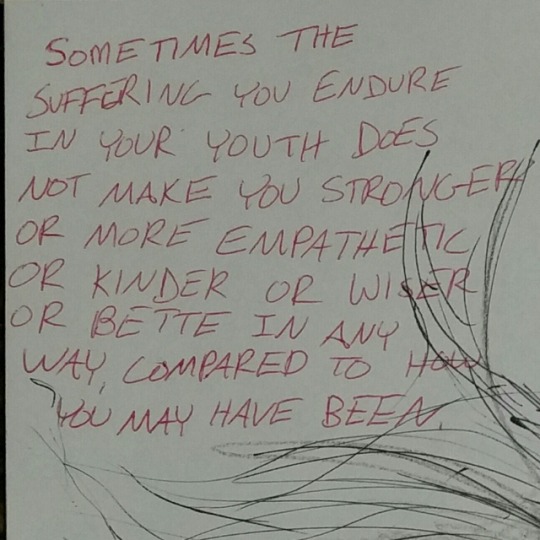 SOMETIMES THE
SUFFERING YOU ENDURE
IN YOUR YOUTH DOES
NOT MAKE YOU STRONGER
OR MORE EMPATHETIC
OR KINDER OR WISER
OR BETTE IN ANY
WAY, COMPARED TO HOW
YOU MAY HAVE BEEN.